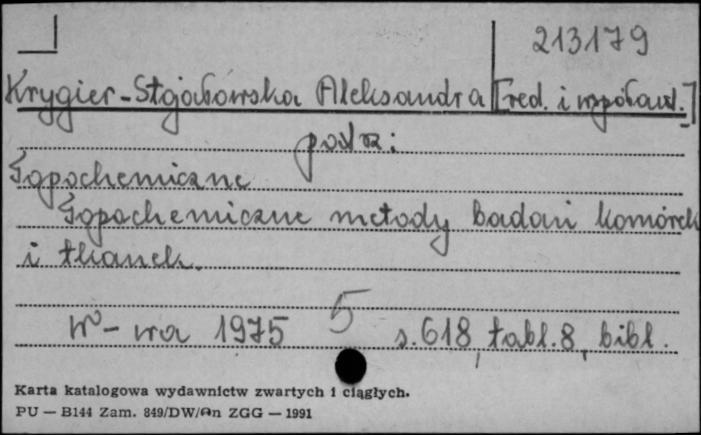 213179
Krygier-Stojałowska Aleksandra [red. i współaut.]
patrz:
Topochemiczne
Topochemiczne metody badań komórek
i tkanek.
W-wa 1975 5 s.618, tabl.8, bibl.
Karta katalogowa wydawnictw zwartych i ciągłych.
PU — B144 Zam. 849/DW/An ZGG — 1991